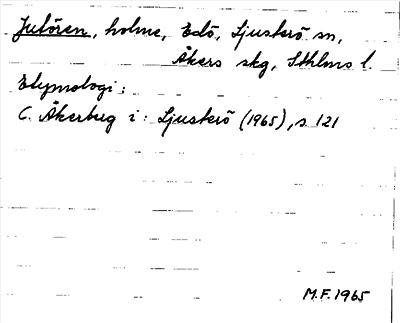 Julören, holme, Edö, Ljusterö sn,
Åkers skg, Sthlms l.
Etymologi:
C. Åkerberg i: Ljusterö (1965), s 121
M.F. 1965